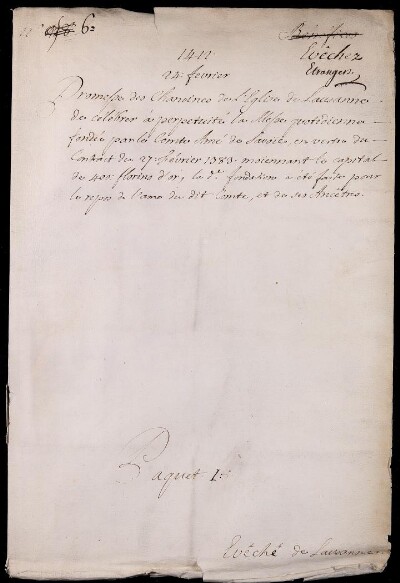 6.e
Evêchez
Etrangers
1411
24 fevrier
Promesse des Chanoines de l'Eglise de Lausanne
de célébrer a perpetuité la Messe quotidienne
fondée par le Comte Amé de Savoie, en vertu du
Contract du 27 février 1383 moiennant le capital
de 400 florins d'or, la d.e fondation a été faite pour
le repos de l'ame du dit Comte, et de ses Ancêtres
Paquet 1.er
Evêché de Lausanne